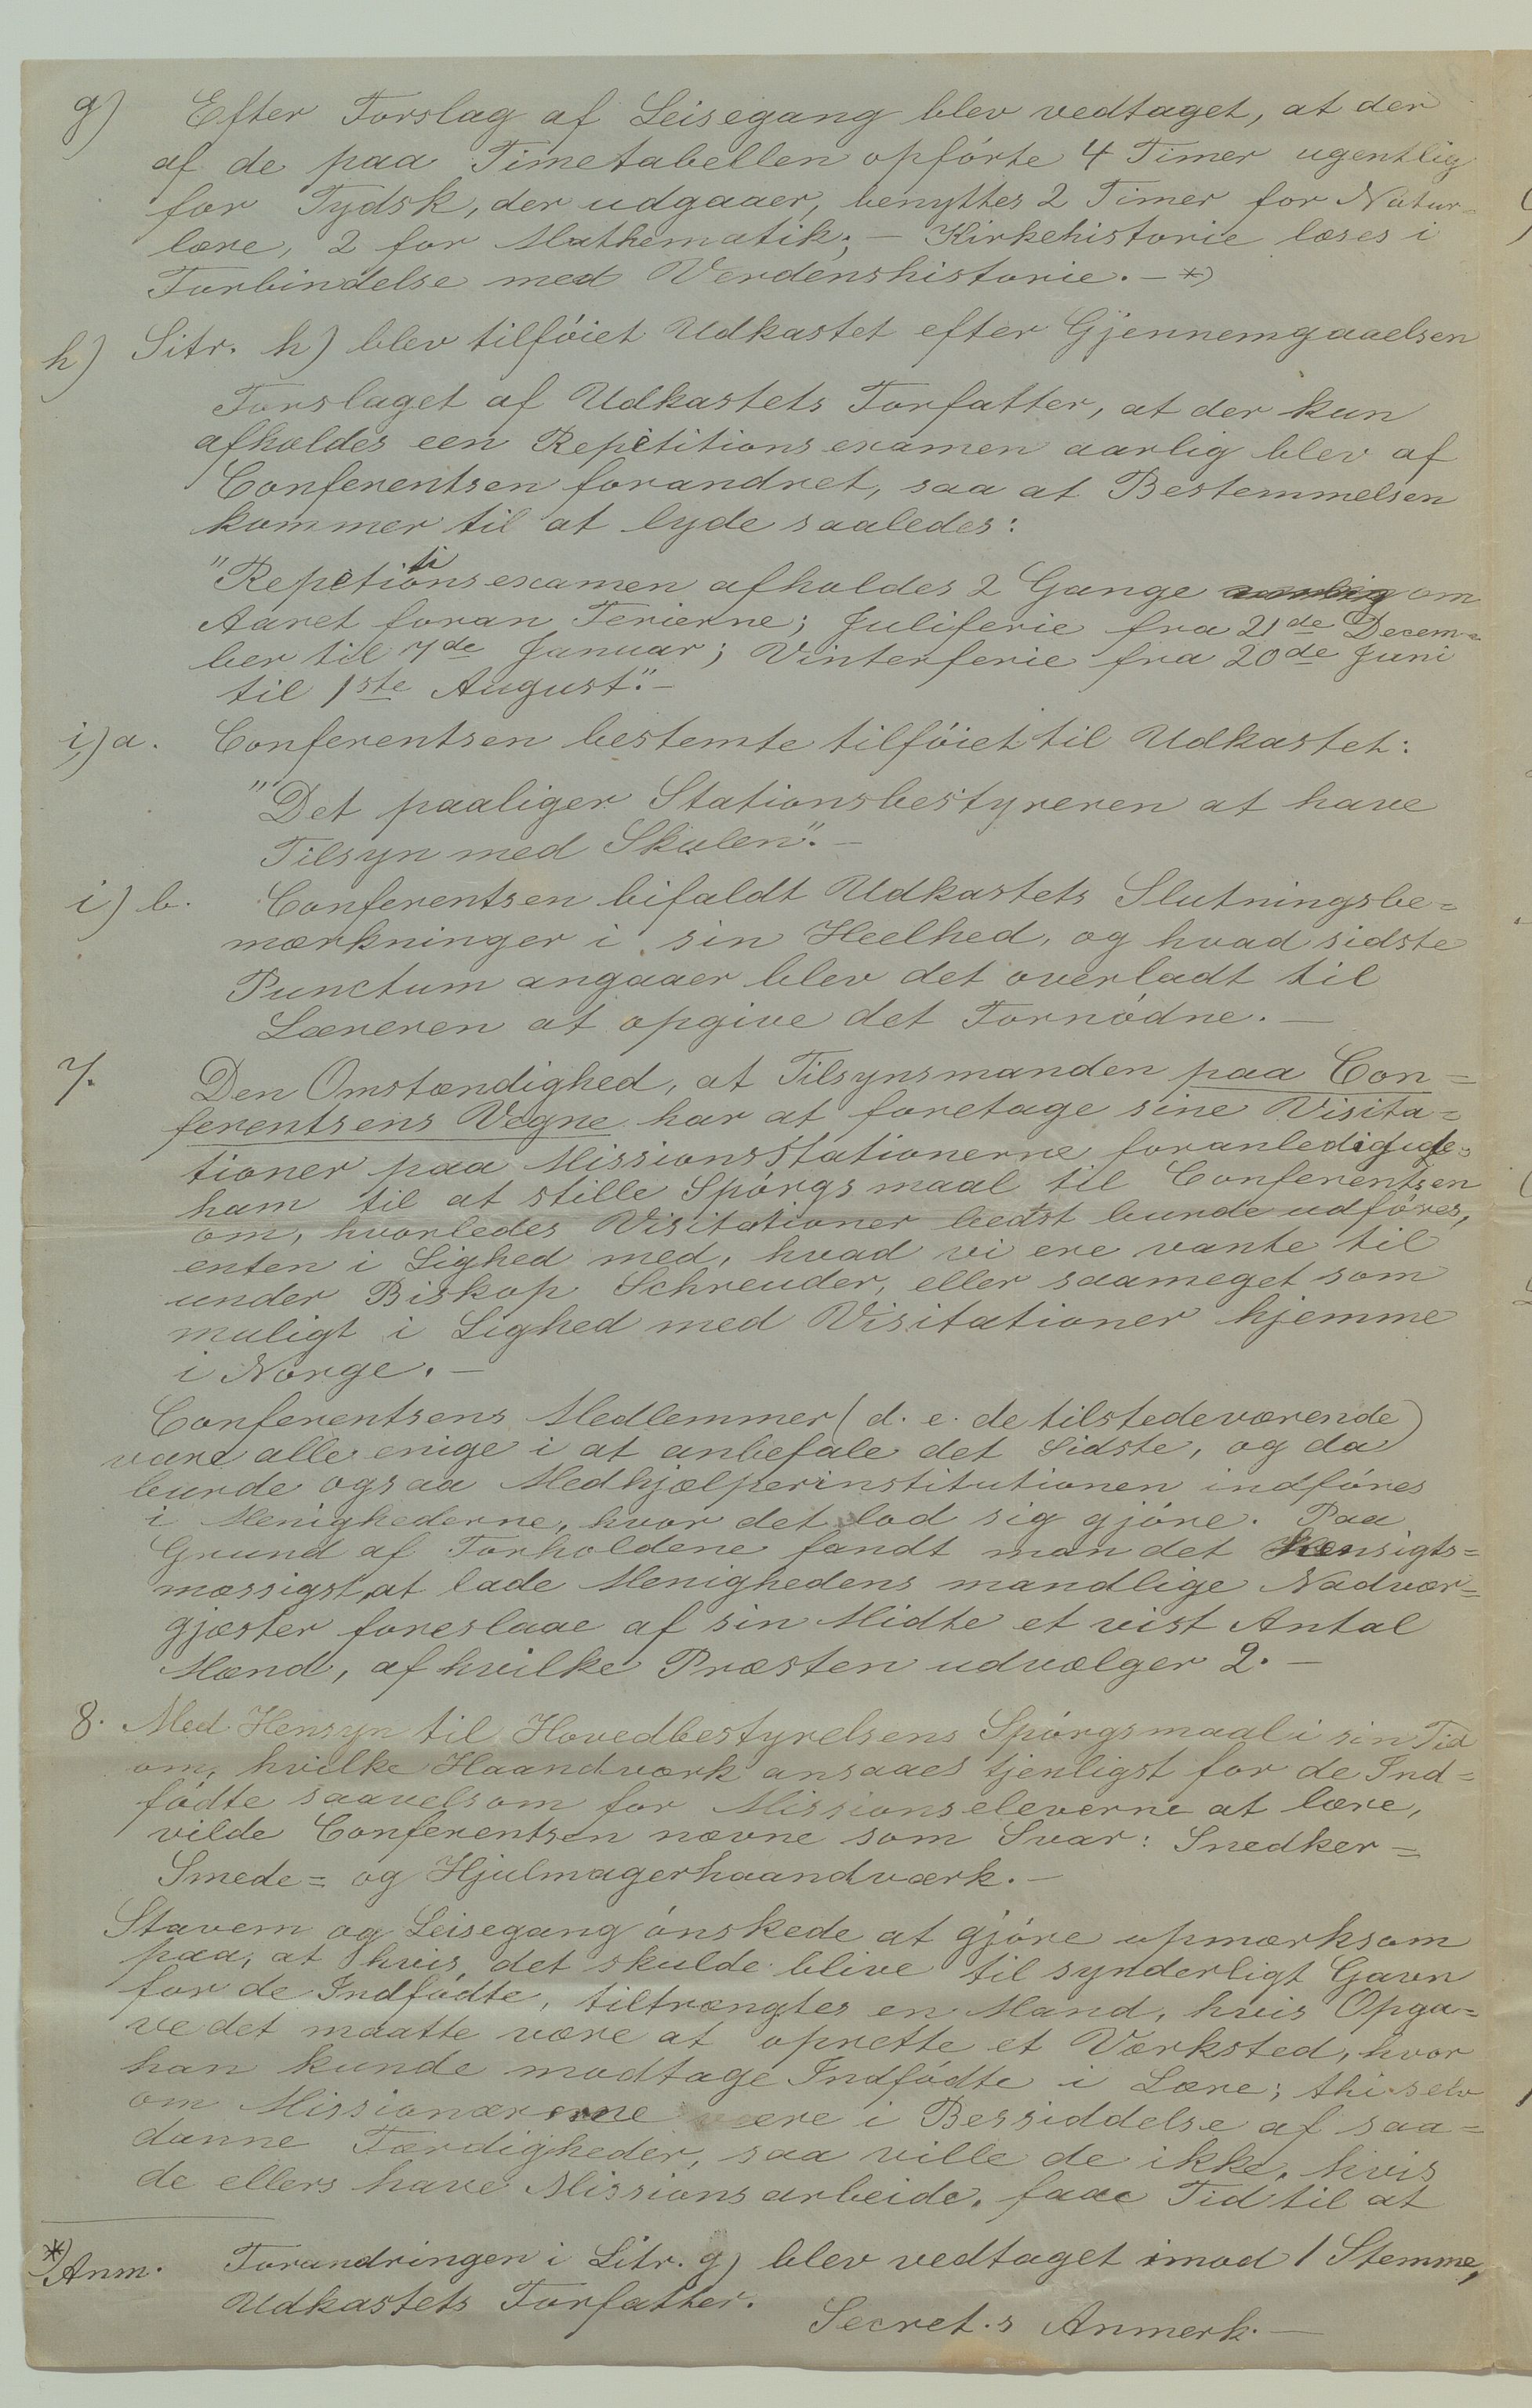 g) Efter Forslag af Leisegang blev vedtaget, at der
af de paa Timetabellen opførte 4 Timer ugentlig
for Tydsk, der udgaaer, benyttes 2 Timer for Natur-
lære, 2 for Mathematik; – Kirkehistorie læses i
Forbindelse med Verdenshistorie. – *)
h) Litr. h) blev tilføiet Udkastet efter Gjennemgaaelsen
Forslaget af Udkastets Forfatter, at der kun
afholdes een Repetitionsexamen aarlig blev af
Conferentsen forandret, saa at Bestemmelsen
kommer til at lyde saaledes:
"Repetitionsexamen afholdes 2 Gange aarlig om
Aaret foran Ferierne; Juliferie fra 21de Decem=
ber til 7de Januar; Vinterferie fra 20de Juni
til 1ste August." –
i) a. Conferentsen bestemte tilføiet til Udkastet:
"Det paaliger Stationsbestyreren at have
Tilsyn med Skolen". –
i) b. Conferentsen bifaldt Udkastets Slutningsbe=
mærkninger i sin Heelhed, og hvad sidste
Punctum angaaer blev det overladt til
Læreren at opgive det Fornødne. –
7. Den Omstændighed, at Tilsynsmanden paa Con=
ferentsens Vegne har at foretage sine Visita=
tioner paa Missionsstationerne foranledigede
ham til at stille Spørgsmaal til Conferentsen
om, hvorledes Visitationer bedst burde udføres,
enten i Lighed med, hvad vi ere vante til
under Biskop Schreuder, eller saameget som
muligt i Lighed med Visitationer hjemme
i Norge. –
Conferentsens Medlemmer (d. e. de tilstedeværende)
vare alle enige i at anbefale det Sidste, og da
burde ogsaa Medhjælperinstitutionen indføres
i Menighederne, hvor det lod sig gjøre. Paa
Grund af Forholdene fandt man det hensigts=
mæssigst, at lade Menighedens mandlige Nadver=
gjæster foreslaae af sin Midte et vist Antal
Mænd, af hvilke Præsten udvælger 2. –
8. Med Hensyn til Hovedbestyrelsens Spørgsmaal i sin Tid
om, hvilke Haandværk ansaaes tjenligst for de Ind=
fødte saavelsom for Missionseleverne at lære,
vilde Conferentsen nævne som Svar: Snedker=
Smede= og Hjulmagerhaandværk. –
Stavem og Leisegang ønskede at gjøre opmærksom
paa, at hvis det skulde blive til synderligt Gavn
for de Indfødte, tiltrængtes en Mand, hvis Opga=
ve det maatte være at oprette et Værksted, hvor
han kunde modtage Indfødte i Lære; thi selv
om Missionærerne være i Bessiddelse af saa=
danne Færdigheder, saa ville de ikke, hvis
de ellers have Missionsarbeide, faae Tid til at
*) Anm. Forandringen i Litr. g) blev vedtaget imod 1 Stemme,
Udkastets Forfatter.
Secret.s Anmerk. –